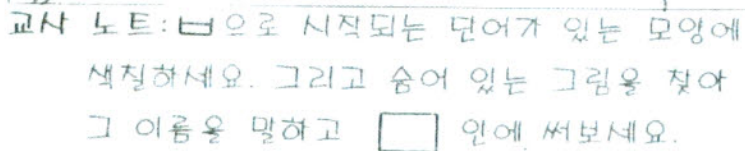 교사 노트: ㅂ으로 시작되는 단어가 있는 모양에
색칠하세요. 그리고 숨어 있는 그림을 찾아
그 이름을 말하고 □ 안에 써보세요.